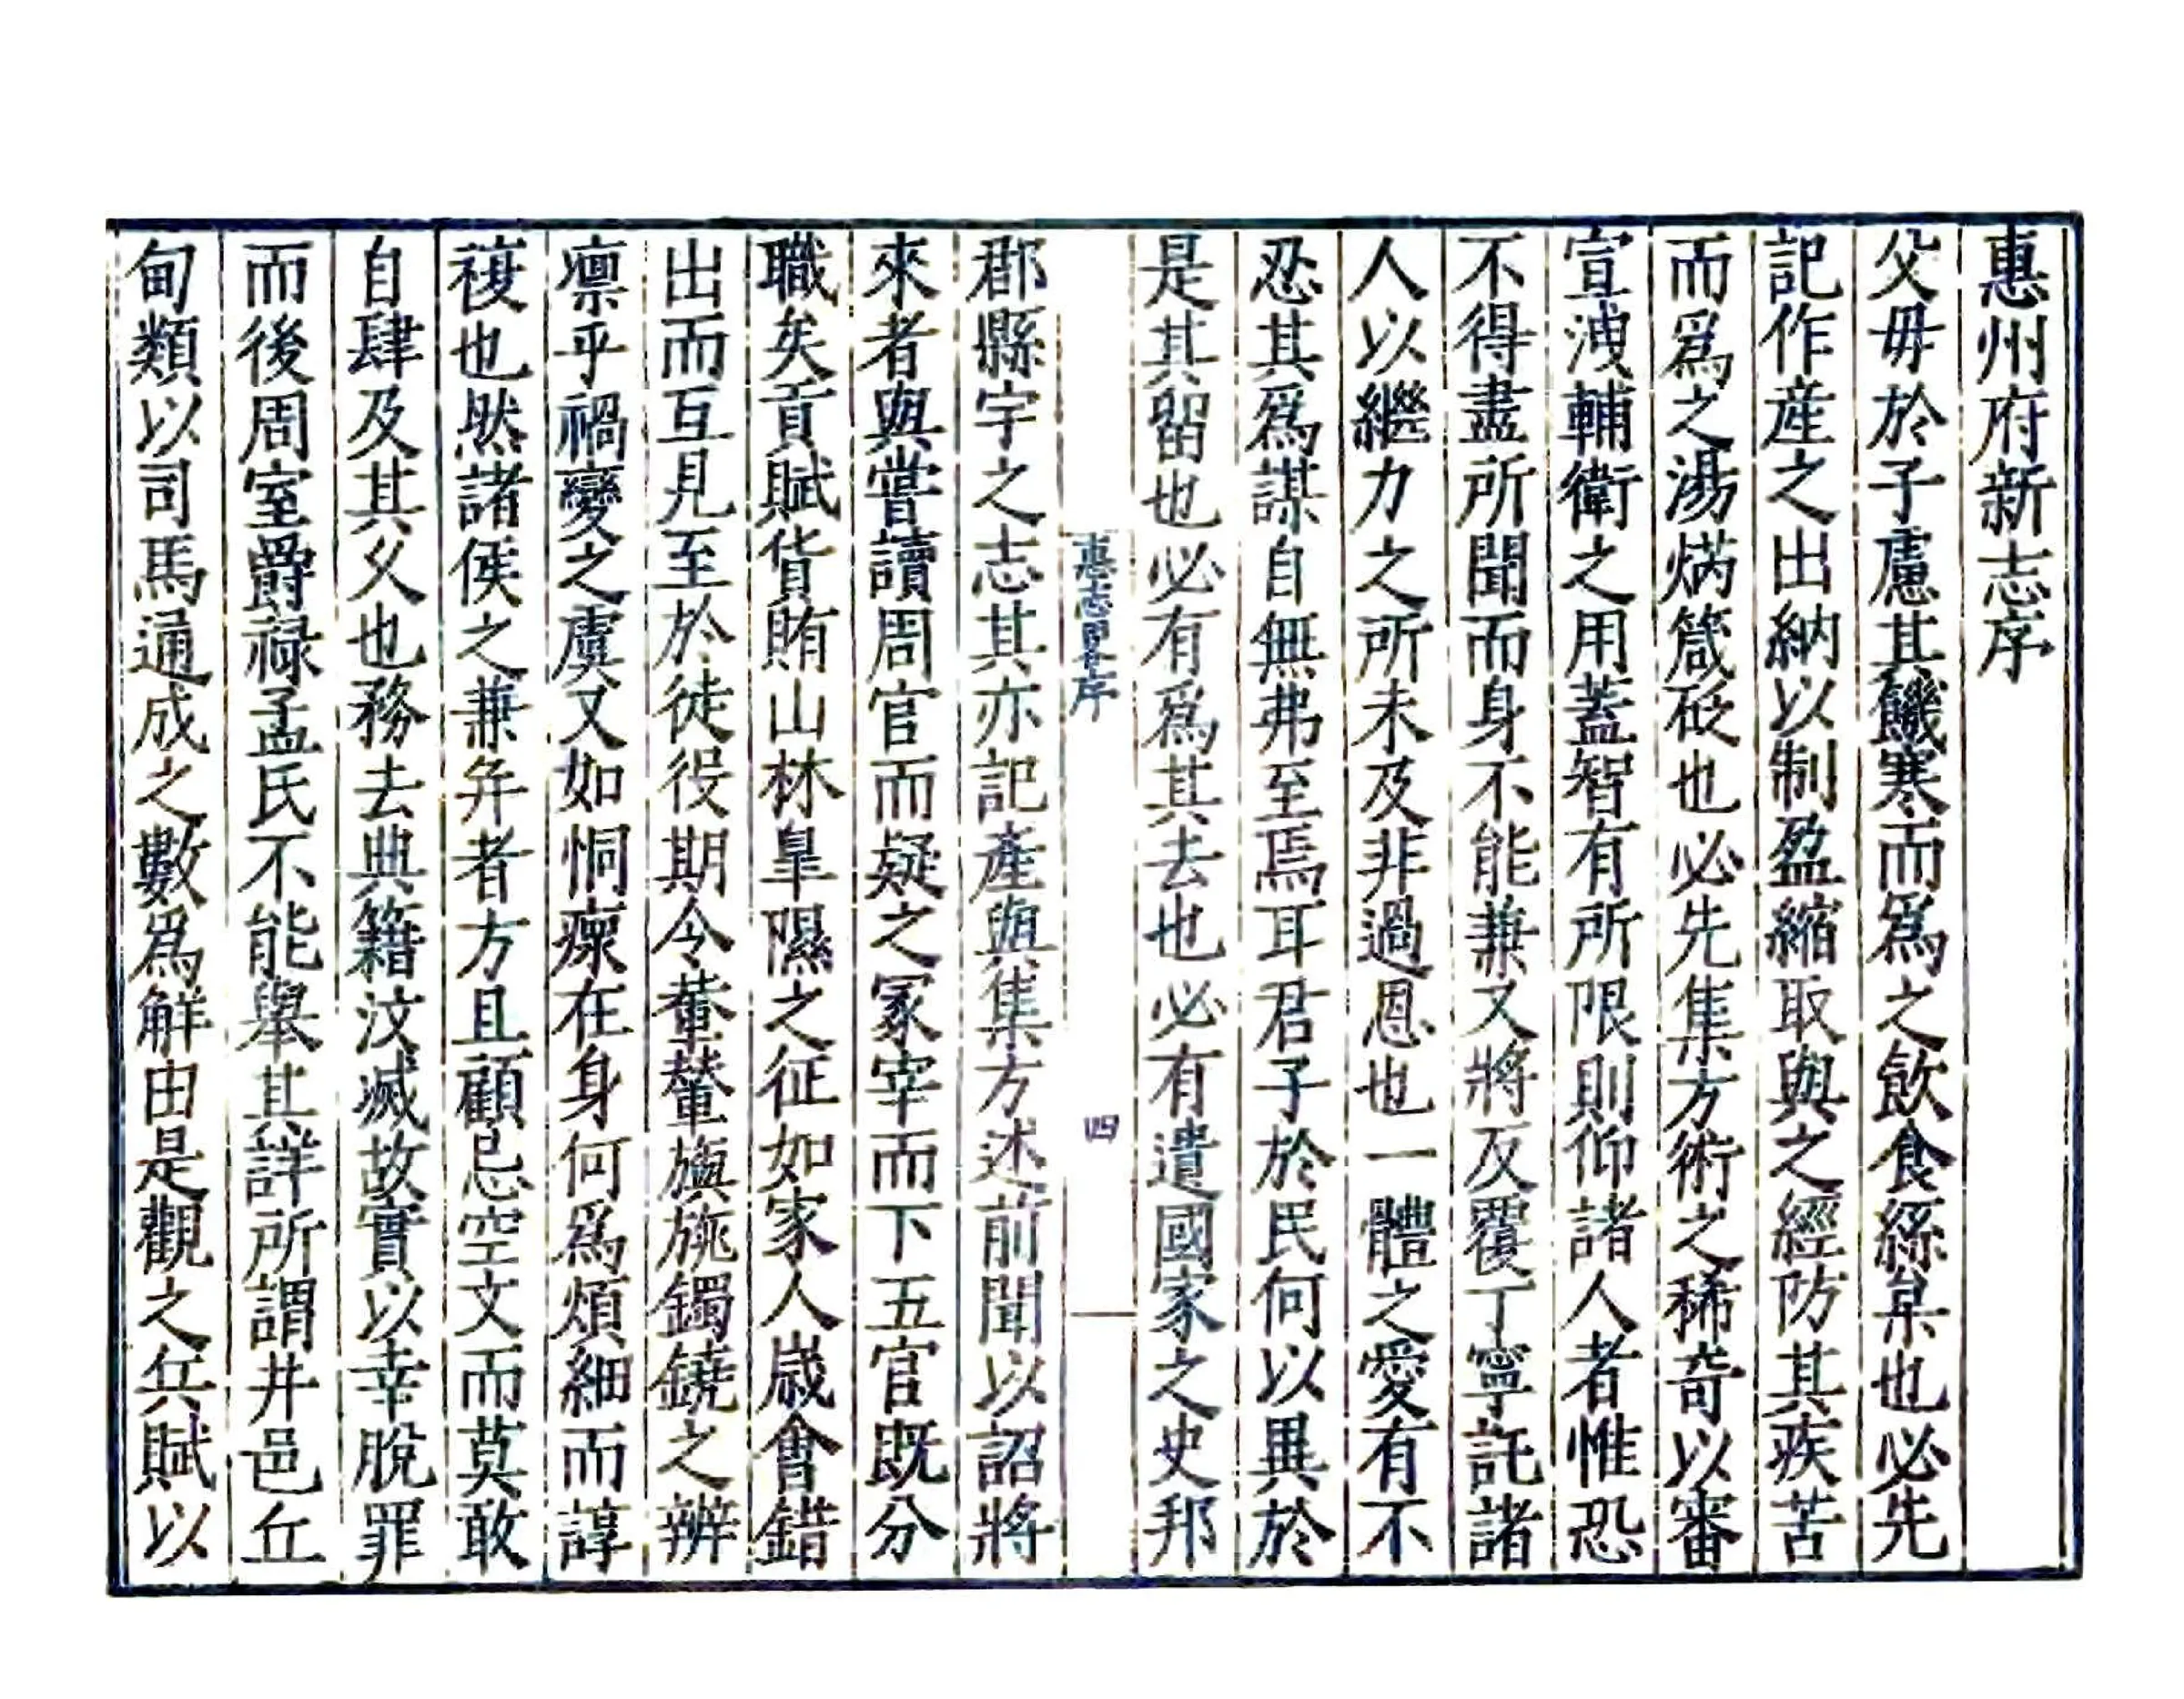 惠州府新志序
父毋於子慮其饑寒而爲之飲食絲枲也必先
記作産之出納以制盈縮取與之經防其疾苦
而爲之湯焫箴砭也必先集方術之稀奇以審
宣洩輔衛之用蓋智有所限則仰諸人者惟恐
不得盡所聞而身不能兼又將反覆丁寧託諸
人以繼力之所未及非過恩也一體之愛有不
忍其爲謀自無弗至焉耳君子於民何以異於
是其留也必有爲其去也必有遺國家之史邦
惠志序
四
郡縣宇之志其亦記產與集方述前聞以詔將
來者與嘗讀周官而疑之冢宰而下五官既分
職矣貢賦貨賄山林臯隰之征如家人歲會錯
出而互見至於徒役期令輦輂旟旐鐲鐃之辨
凛乎禍變之虞又如恫瘝在身何爲煩細而諄
複也然諸侯之兼并者方且顧忌空文而莫敢
自肆及其久也務去典籍汶滅故實以幸脫罪
而後周室爵祿孟氏不能舉其詳所謂井邑丘
甸類以司馬通成之數爲解由是觀之兵賦以